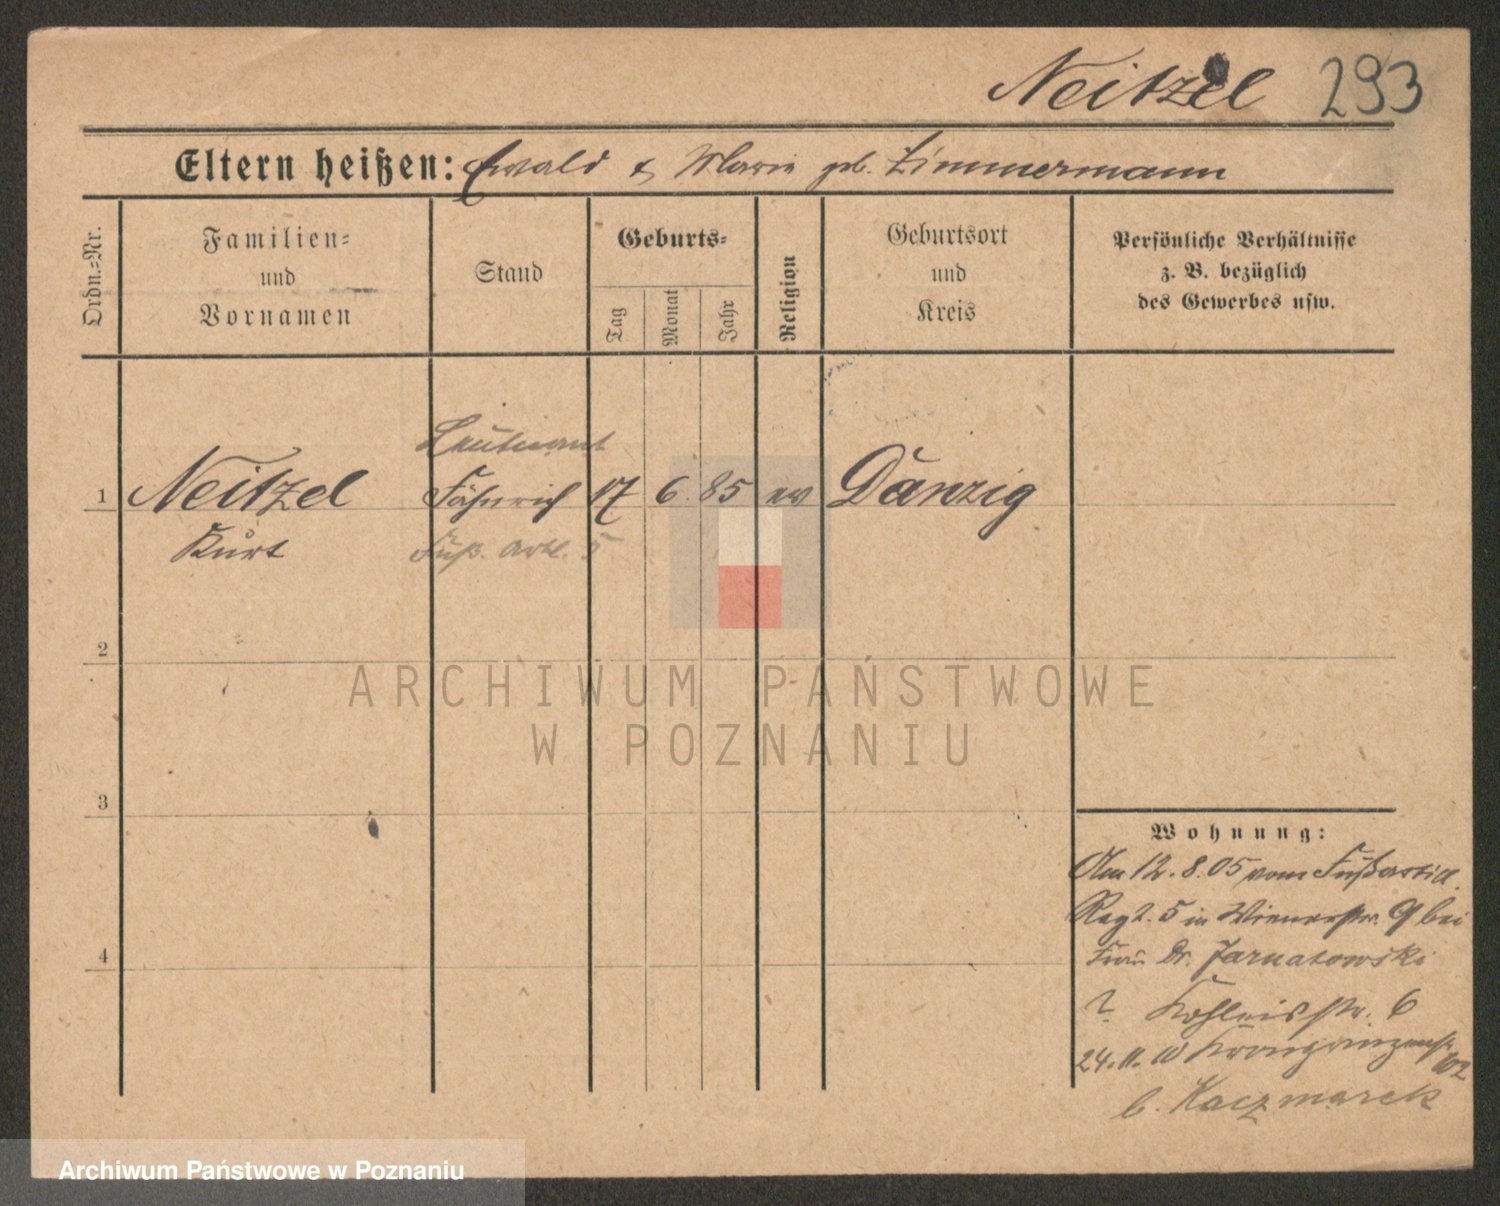 Neitzel 293
Eltern heißen: Ewald & Marie geb. Zimmermann
Ordn.-Nr.
Familien-
und
Vornamen
Stand
Geburts-
Tag
Monat
Jahr
Religion
Geburtsort
und
Kreis
Persönliche Verhältnisse
z. B. bezüglich
des Gewerbes usw.
Leutnant
1 Neitzel Fähnrich 17 6. 85 ev Danzig
Kurt Fuß. Artl. 5
2
3
4
Wohnung:
Am 12.8.05 vom Fußartill.
Regt. 5 in Wienerstr. 9 bei
Frau Dr. Jarnatowski
? Kohleisstr. 6
24.11.10 Kronprinzenstr 102
b. Kaczmarek
ARCHIWUM PAŃSTWOWE
W POZNANIU
Archiwum Państwowe w Poznaniu